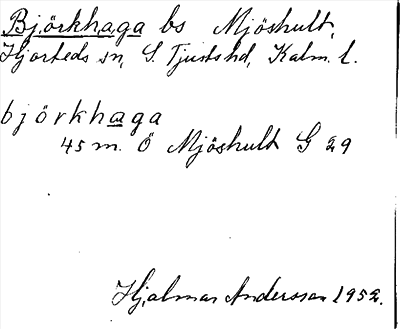 Björkhaga bs Mjöshult,
Hjorteds sn, S. Tjusts hd, Kalm. l.
björkhaga
45 m. Ö Mjöshult G 29
Hjalmar Andersson 1952.